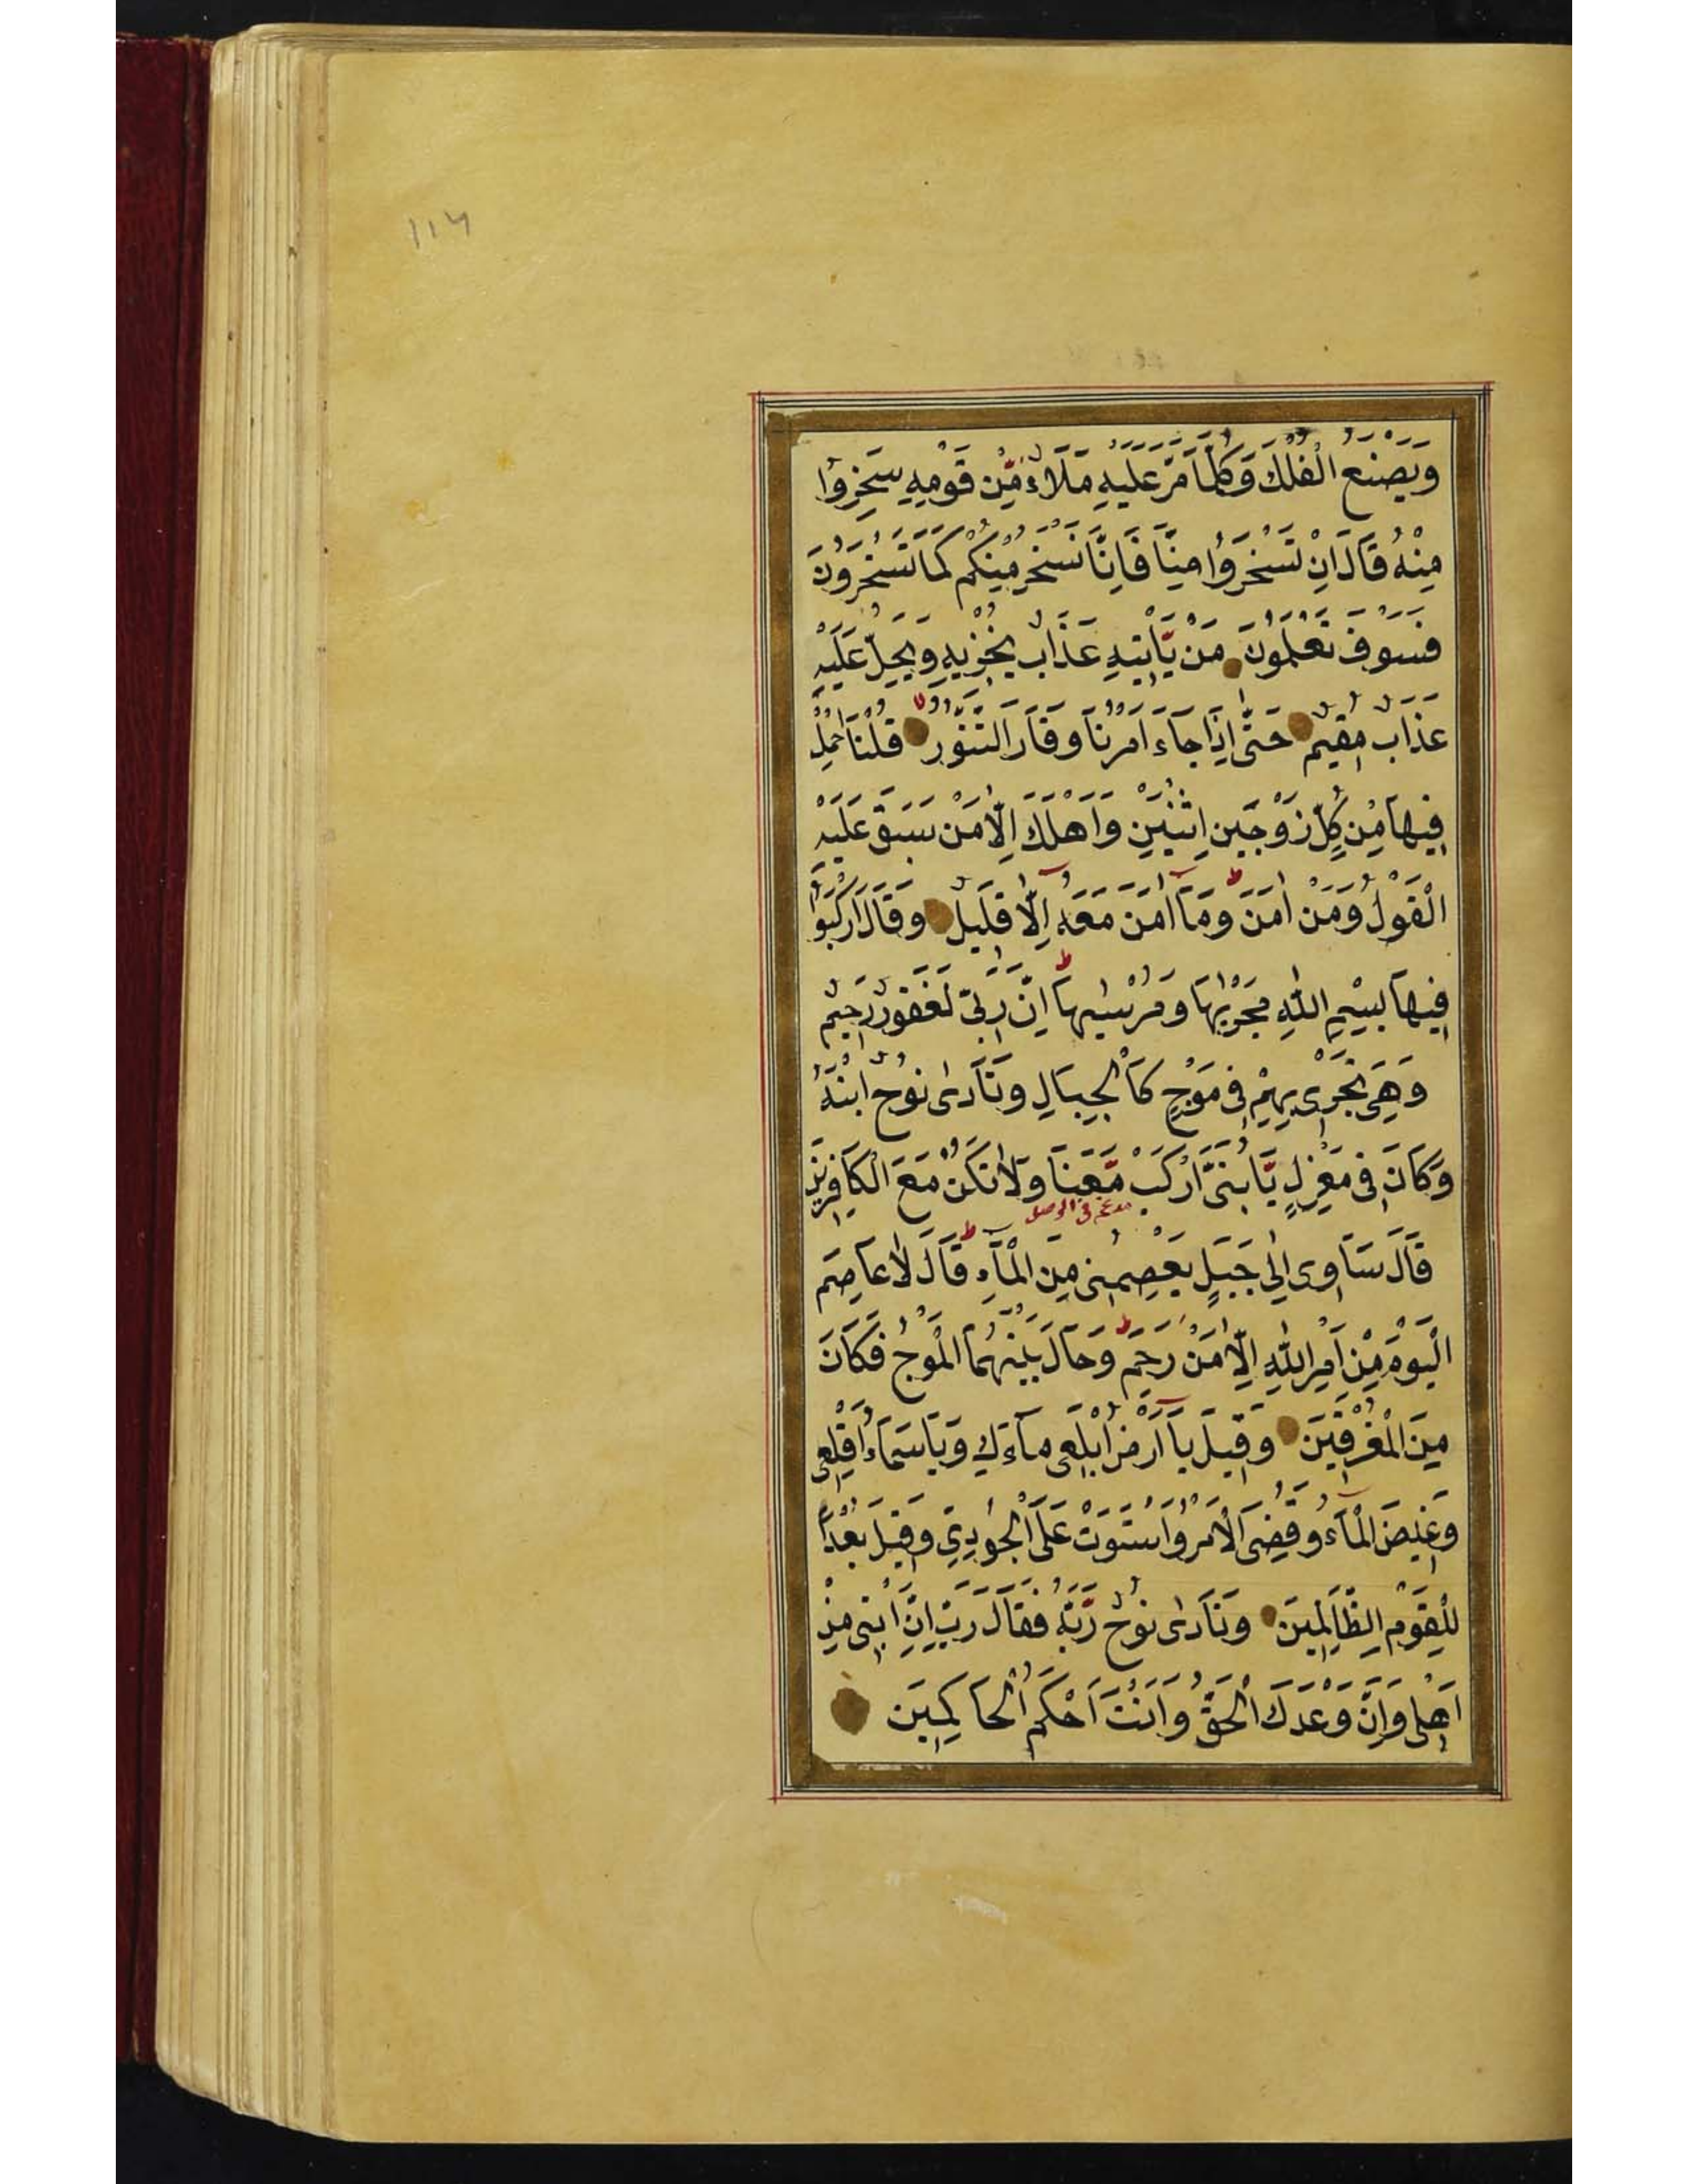 ١١٦
وَيَصْنَعُ الْفُلْكَ وَكُلَّمَا مَرَّ عَلَيْهِ مَلَاءٌ مِّنْ قَوْمِهِ سَخِرُوا
مِنْهُ قَالَ اِنْ تَسْخَرُوا مِنَّا فَاِنَّا نَسْخَرُ مِنْكُمْ كَمَا تَسْخَرُونَ
فَسَوْفَ تَعْلَمُونَ مَنْ يَّاْتِيهِ عَذَابٌ يُخْزِيهِ وَيَحِلُّ عَلَيْهِ
عَذَابٌ مُقِيمٌ حَتّٰى اِذَا جَآءَ اَمْرُنَا وَفَارَ التَّنُّورُ قُلْنَا احْمِلْ
فِيهَا مِنْ كُلٍّ زَوْجَيْنِ اثْنَيْنِ وَاَهْلَكَ اِلَّا مَنْ سَبَقَ عَلَيْهِ
الْقَوْلُ وَمَنْ اٰمَنَ وَمَآ اٰمَنَ مَعَهُ اِلَّا قَلِيلٌ وَقَالَ ارْكَبُوا
فِيهَا بِسْمِ اللّٰهِ مَجْرٰيهَا وَمُرْسٰيهَا اِنَّ رَبِّى لَغَفُورٌ رَحِيمٌ
وَهِىَ تَجْرِى بِهِمْ فِى مَوْجٍ كَالْجِبَالِ وَنَادٰى نُوحٌ ابْنَهُ
وَكَانَ فِى مَعْزِلٍ يَّا بُنَىَّ ارْكَبْ مَّعَنَا وَلَا تَكُنْ مَعَ الْكَافِرِينَ
مدغم فى الوصل
قَالَ سَاٰوِى اِلٰى جَبَلٍ يَعْصِمُنِى مِنَ الْمَآءِ قَالَ لَا عَاصِمَ
الْيَوْمَ مِنْ اَمْرِ اللّٰهِ اِلَّا مَنْ رَحِمَ وَحَالَ بَيْنَهُمَا الْمَوْجُ فَكَانَ
مِنَ الْمُغْرَقِينَ وَقِيلَ يَآ اَرْضُ ابْلَعِى مَآءَكِ وَيَا سَمَآءُ اَقْلِعِى
وَغِيضَ الْمَآءُ وَقُضِىَ الْاَمْرُ وَاسْتَوَتْ عَلَى الْجُودِىِّ وَقِيلَ بُعْدًا
لِلْقَوْمِ الظَّالِمِينَ وَنَادٰى نُوحٌ رَّبَّهُ فَقَالَ رَبِّ اِنَّ ابْنِى مِنْ
اَهْلِى وَاِنَّ وَعْدَكَ الْحَقُّ وَاَنْتَ اَحْكَمُ الْحَاكِمِينَ